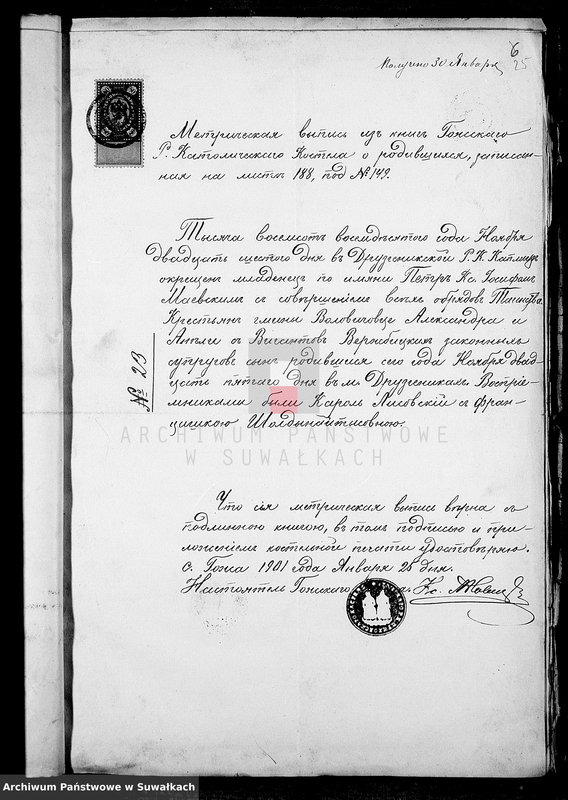 6
Получено 30 Января 25
Метрическая выпись изъ книг Гожскаго
Р. Католическаго Костела о родившихся, записан-
ная на листѣ 188, под № 149.
Тысяча восемсотъ восемдесятого года Ноября
двадцать шестого дня въ Друзгеникской Р. К.
окрещенъ младенецъ по имяни Петръ Кс. Іосифомъ
Маевскимъ съ совершеніемъ всѣхъ обрядовъ Таинства
Крестьян гмины Воловичовце Александра и
Анели съ законныхъ
супруговъ сынъ, родившійся сего года Ноября двад-
цать пятаго дня въ м. Друзгеникахъ. Воспріе-
мниками были Кароль Лисовскій с Фран-
цишкою
№ 23
ARCHIWUM PAŃSTWOWE
W SUWAŁKACH
Что сія метрическая выпись вѣрна съ
подлинною книгою, въ томъ подписью и при-
ложеніемъ костельной печати удостовѣряю.
с. Гожа 1901 года Января 25 дня.
Настоятель Гожскаго Кс.
Archiwum Państwowe w Suwałkach